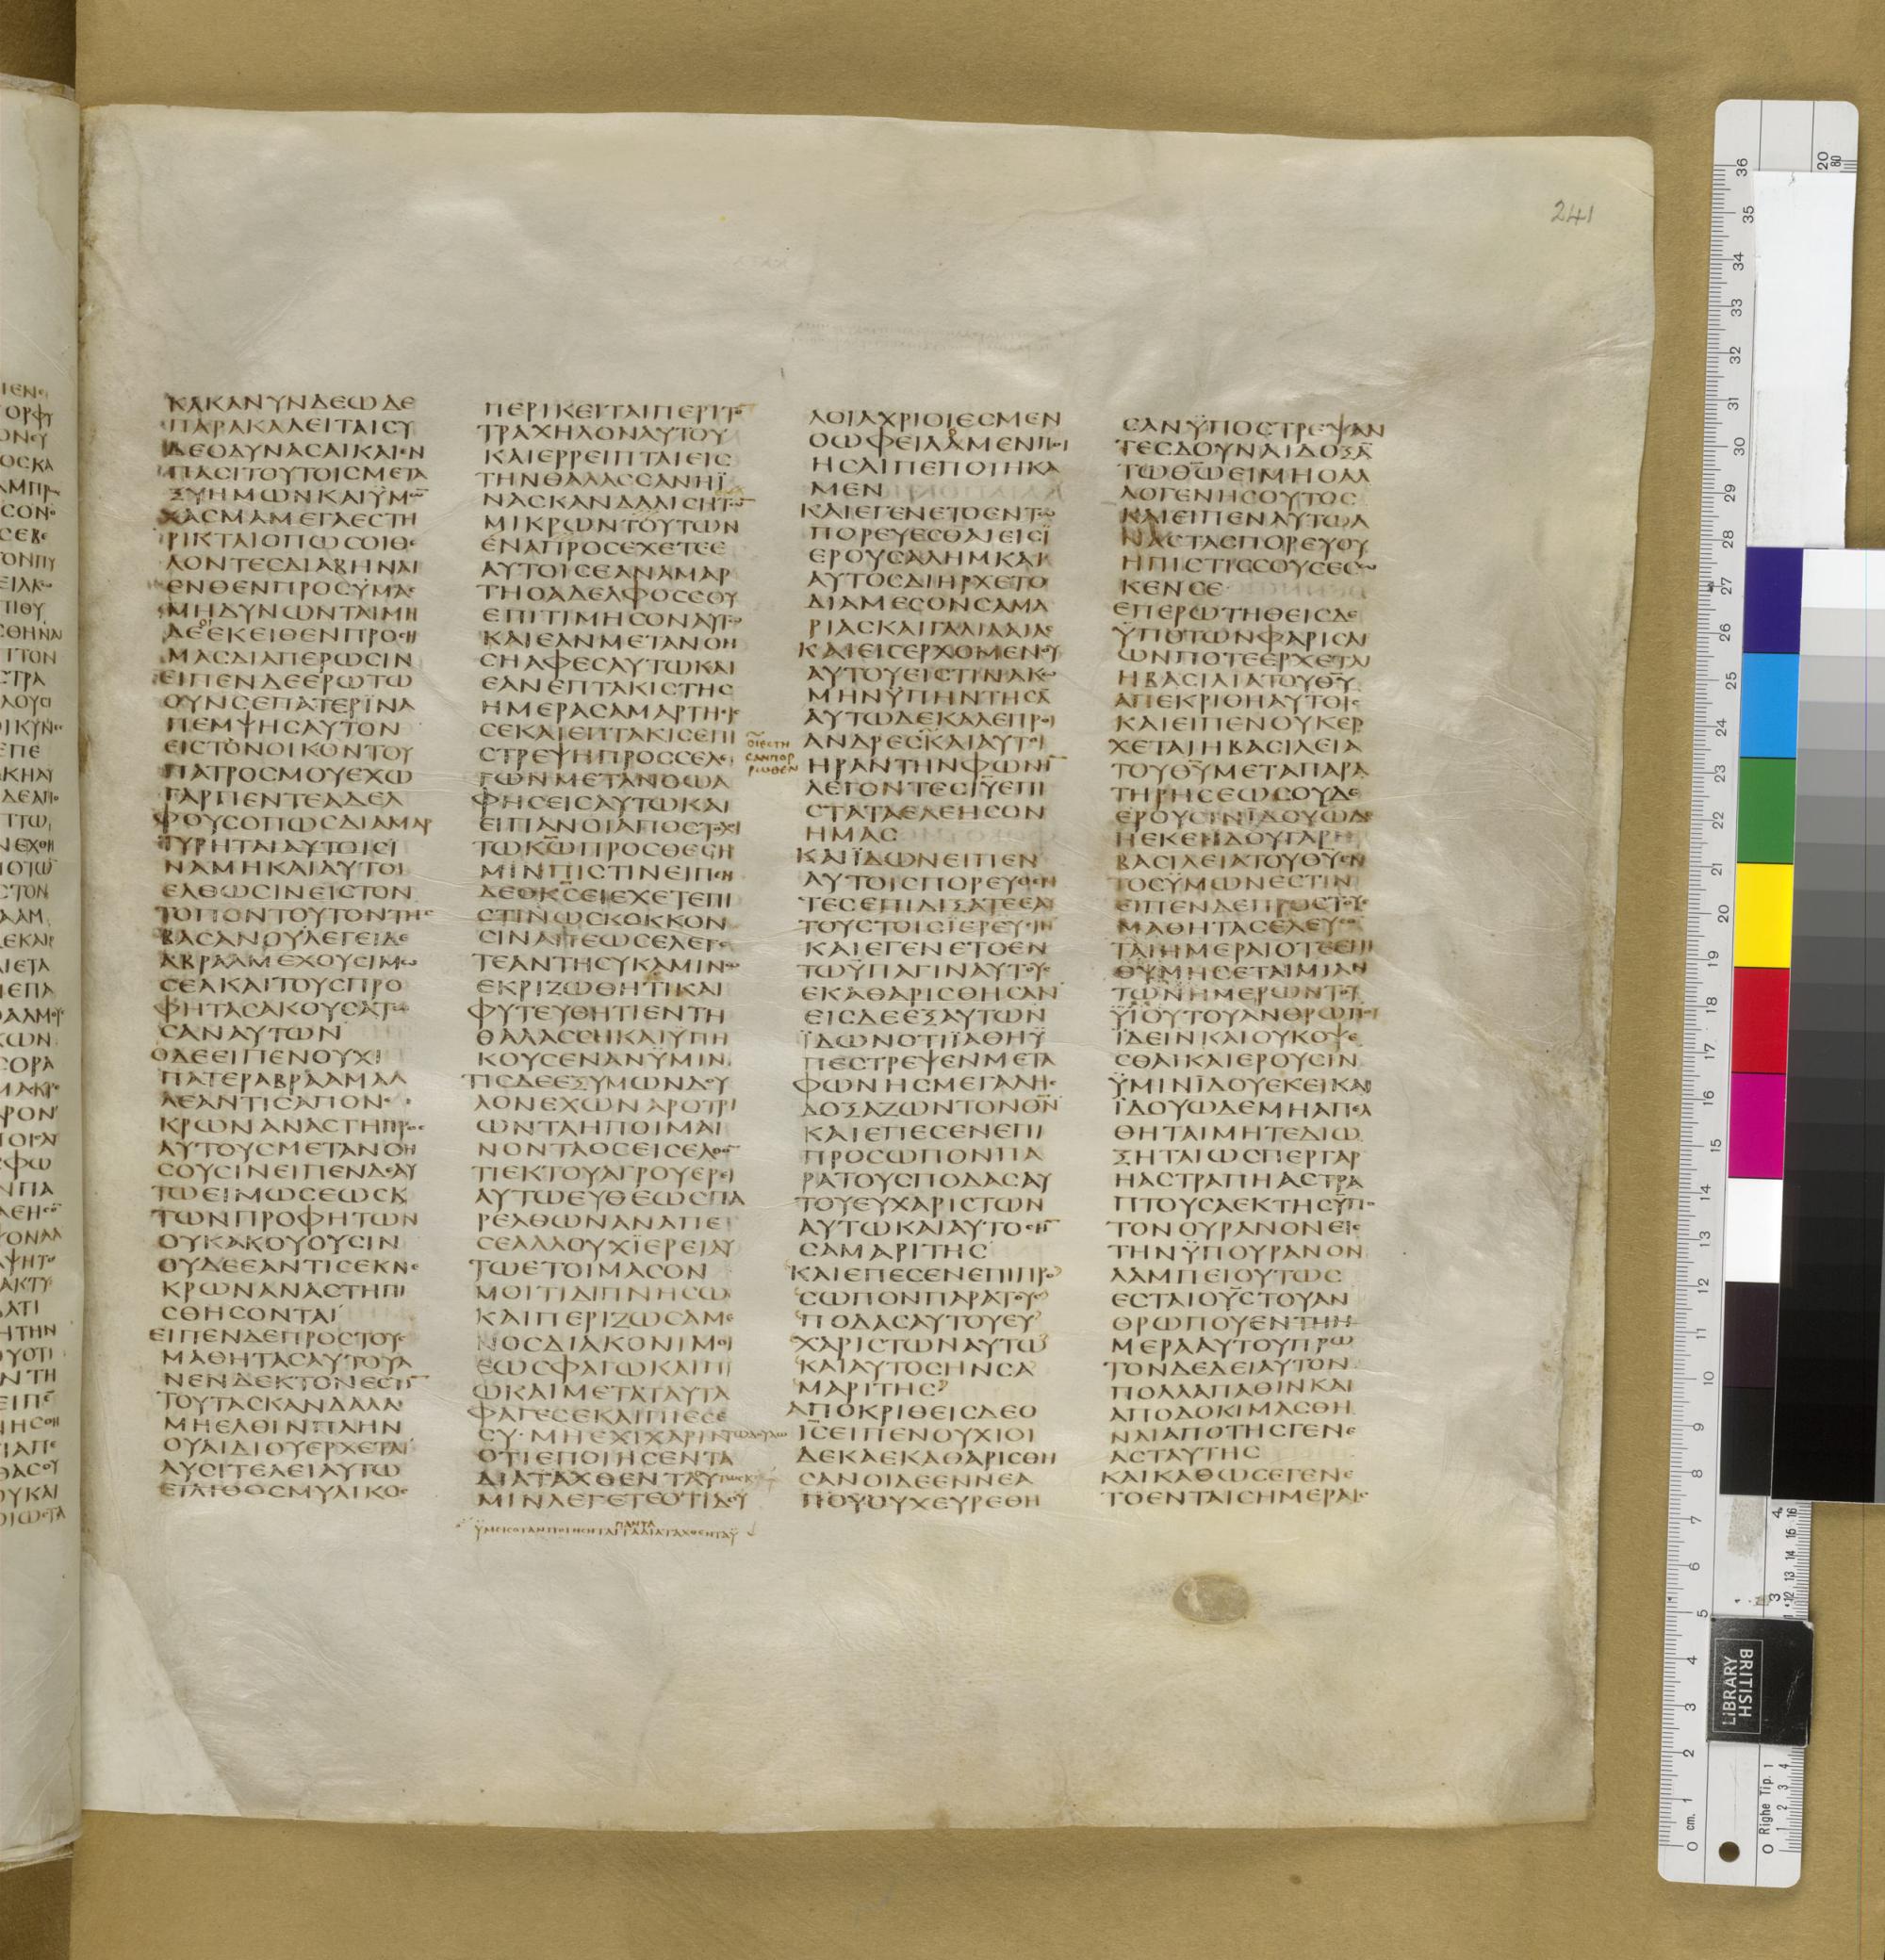 241
ΚΑΚΑΝΥΝΔΕΩΔΕ
ΠΑΡΑΚΑΛΕΙΤΑΙCΥ
ΔΕΟΔΥΝΑCΑΙΚΑΙΕΝ
ΠΑCΙΤΟΥΤΟΙCΜΕΤΑ
ΞΥΗΜΩΝΚΑΙΫΜΩ̅
ΧΑCΜΑΜΕΓΑΕCΤΗ
ΡΙΚΤΑΙΟΠΩCΟΙΘΕ
ΛΟΝΤΕCΔΙΑΒΗΝΑΙ
ΕΝΘΕΝΠΡΟCΫΜΑC
ΜΗΔΥΝΩΝΤΑΙΜΗ
ΔΕΟΙΕΚΕΙΘΕΝΠΡΟCΗ
ΜΑCΔΙΑΠΕΡΩCΙΝ
ΕΙΠΕΝΔΕΕΡΩΤΩ
ΟΥΝCΕΠΑΤΕΡΪΝΑ
ΠΕΜΨΗCΑΥΤΟΝ
ΕΙCΤΟΝΟΙΚΟΝΤΟΥ
ΠΑΤΡΟCΜΟΥΕΧΩ
ΓΑΡΠΕΝΤΕΑΔΕΛ
ΦΟΥCΟΠΩCΔΙΑΜΑΡ
ΤΥΡΗΤΑΙΑΥΤΟΙCΪ
ΝΑΜΗΚΑΙΑΥΤΟΙ
ΕΛΘΩCΙΝΕΙCΤΟΝ
ΤΟΠΟΝΤΟΥΤΟΝΤΗC
ΒΑCΑΝΟΥΛΕΓΕΙΔΕ
ΑΒΡΑΑΜΕΧΟΥCΙΜΩ
ΣΕΑΚΑΙΤΟΥCΠΡΟ
ΦΗΤΑCΑΚΟΥCΑΤΩ
CΑΝΑΥΤΩΝ
ΟΔΕΕΙΠΕΝΟΥΧΙ
ΠΑΤΕΡΑΒΡΑΑΜΑΛ
ΛΕΑΝΤΙCΑΠΟΝΕ
ΚΡΩΝΑΝΑCΤΗΠΡΟC
ΑΥΤΟΥCΜΕΤΑΝΟΗ
CΟΥCΙΝΕΙΠΕΝΔΕΑΥ
ΤΩΕΙΜΩCΕΩCΚ
ΤΩΝΠΡΟΦΗΤΩΝ
ΟΥΚΑΚΟΥΟΥCΙΝ
ΟΥΔΕΕΑΝΤΙCΕΚΝΕ
ΚΡΩΝΑΝΑCΤΗΠΙ
CΘΗCΟΝΤΑΙ
ΕΙΠΕΝΔΕΠΡΟCΤΟΥC
ΜΑΘΗΤΑCΑΥΤΟΥΑ
ΝΕΝΔΕΚΤΟΝΕCΤΙ̅
ΤΟΥΤΑCΚΑΝΔΑΛΑ
ΜΗΕΛΘΙΝΠΛΗΝ
ΟΥΑΙΔΙΟΥΕΡΧΕΤΑΙ
ΛΥCΙΤΕΛΕΙΑΥΤΩ
ΕΙΛΙΘΟCΜΥΛΙΚΟC
ΠΕΡΙΚΕΙΤΑΙΠΕΡΙΤΟ̅
ΤΡΑΧΗΛΟΝΑΥΤΟΥ
ΚΑΙΕΡΡΕΙΠΤΑΙΕΙC
ΤΗΝΘΑΛΑCCΑΝΗΪ
ΝΑCΚΑΝΔΑΛΙCΗΤΩ̅
ΜΙΚΡΩΝΤΟΥΤΩΝ
ΕΝΑΠΡΟCΕΧΕΤΕΕ
ΑΥΤΟΙCΕΑΝΑΜΑΡ
ΤΗΟΑΔΕΛΦΟCCΟΥ
ΕΠΙΤΙΜΗCΟΝΑΥΤΩ
ΚΑΙΕΑΝΜΕΤΑΝΟΗ
CΗΑΦΕCΑΥΤΩΚΑΙ
ΕΑΝΕΠΤΑΚΙCΤΗC
ΗΜΕΡΑCΑΜΑΡΤΗΕΙC
CΕΚΑΙΕΠΤΑΚΙCΕΠΙ
CΤΡΕΨΗΠΡΟCCΕΛΕ
ΓΩΝΜΕΤΑΝΟΩΑ
ΦΗCΕΙCΑΥΤΩΚΑΙ
ΕΙΠΑΝΟΙΑΠΟCΤΟΛΟΙ
ΤΩΚ̅Ω̅ΠΡΟCΘΕCΗ
ΜΙΝΠΙCΤΙΝΕΙΠΕΝ
ΔΕΟΚ̅C̅ΕΙΕΧΕΤΕΠΙ
CΤΙΝΩCΚΟΚΚΟΝ
CΙΝΑΠΕΩCΕΛΕΓΕ
ΤΕΑΝΤΗCΥΚΑΜΙΝΩ
ΕΚΡΙΖΩΘΗΤΙΚΑΙ
ΦΥΤΕΥΘΗΤΙΕΝΤΗ
ΘΑΛΑCCΗΚΑΙΫΠΗ
ΚΟΥCΕΝΑΝΫΜΙΝ
ΤΙCΔΕΕΞΥΜΩΝΔΟΥ
ΛΟΝΕΧΩΝΑΡΟΤΡΙ
ΩΝΤΑΗΠΟΙΜΑΙ
ΝΟΝΤΑΟCΕΙCΕΛΘΟ̅
ΤΙΕΚΤΟΥΑΓΡΟΥΕΡΕΙ
ΑΥΤΩΕΥΘΕΩCΠΑ
ΡΕΛΘΩΝΑΝΑΠΕ
CΕΑΛΛΟΥΧΪΕΡΕΙΑΥ
ΤΩΕΤΟΙΜΑCΟΝ
ΜΟΙΤΙΔΙΠΝΗCΩ
ΚΑΙΠΕΡΙΖΩCΑΜΕ
ΝΟCΔΙΑΚΟΝΙΜΟΙ
ΕΩCΦΑΓΩΚΑΙΠΙ
ΩΚΑΙΜΕΤΑΤΑΥΤΑ
ΦΑΓΕCΕΚΑΙΠΙΕCΕ
CΥ·ΜΗΕΧΙΧΑΡΙΝΤΩΔΟΥΛΩ
ΟΤΙΕΠΟΙΗCΕΝΤΑ
ΔΙΑΤΑΧΘΕΝΤΑ
ΜΙΝΛΕΓΕΤΕΟΤΙΔΟΥ
ΠΑΝΤΑ
ΟΙΕCΤΗ
CΑΝΠΟΡ
ΡΩΘΕΝ
ΛΟΙΑΧΡΙΟΙΕCΜΕΝ
ΟΩΦΕΙΛΑΜΕΝΠΟΙ
ΗCΑΙΠΕΠΟΙΗΚΑ
ΜΕΝ
ΚΑΙΕΓΕΝΕΤΟΕΝΤΩ
ΠΟΡΕΥΕCΘΑΙΕΙCΪ
ΕΡΟΥCΑΛΗΜΚΑΙ
ΑΥΤΟCΔΙΗΡΧΕΤΟ
ΔΙΑΜΕCΟΝCΑΜΑ
ΡΙΑCΚΑΙΓΑΛΙΛΑΙΑC
ΚΑΙΕΙCΕΡΧΟΜΕΝΟΥ
ΑΥΤΟΥΕΙCΤΙΝΑΚΩ
ΜΗΝΫΠΗΝΤΗCΑ̅
ΑΥΤΩΔΕΚΑΛΕΠΡΟΙ
ΑΝΔΡΕCΚΑΙΑΥΤΟΙ
ΗΡΑΝΤΗΝΦΩΝΗ̅
ΛΕΓΟΝΤΕCΙ̅Υ̅ΕΠΙ
CΤΑΤΑΕΛΕΗCΟΝ
ΗΜΑC
ΚΑΙΪΔΩΝΕΙΠΕΝ
ΑΥΤΟΙCΠΟΡΕΥΘΕΝ
ΤΕCΕΠΙΔΙΞΑΤΕΕΑ
ΤΟΥCΤΟΙCΪΕΡΕΥCΙΝ
ΚΑΙΕΓΕΝΕΤΟΕΝ
ΤΩΫΠΑΓΙΝΑΥΤΟΥC
ΕΚΑΘΑΡΙCΘΗCΑΝ
ΕΙCΔΕΕΞΑΥΤΩΝ
ΪΔΩΝΟΤΙΪΑΘΗΫ
ΠΕCΤΡΕΨΕΝΜΕΤΑ
ΦΩΝΗCΜΕΓΑΛΗC
ΔΟΞΑΖΩΝΤΟΝΘ̅Ν̅
ΚΑΙΕΠΕCΕΝΕΠΙ
ΠΡΟCΩΠΟΝΠΑ
ΡΑΤΟΥCΠΟΔΑCΑΥ
ΤΟΥΕΥΧΑΡΙCΤΩΝ
ΑΥΤΩΚΑΙΑΥΤΟCΗ̅
CΑΜΑΡΙΤΗC
ΚΑΙΕΠΕCΕΝΕΠΙΠΡΟ
CΩΠΟΝΠΑΡΑΤΟΥC
ΠΟΔΑCΑΥΤΟΥΕΥ
ΧΑΡΙCΤΩΝΑΥΤΩ
ΚΑΙΑΥΤΟCΗΝCΑ
ΜΑΡΙΤΗC
ΑΠΟΚΡΙΘΕΙCΔΕΟ
Ι̅C̅ΕΙΠΕΝΟΥΧΙΟΙ
ΔΕΚΑΕΚΑΘΑΡΙCΘΗ
CΑΝΟΙΔΕΕΝΝΕΑ
ΠΟΥΟΥΧΕΥΡΕΘΗ
CΑΝΫΠΟCΤΡΕΨΑΝ
ΤΕCΔΟΥΝΑΙΔΟΞΑ̅
ΤΩΘ̅Ω̅ΕΙΜΗΟΑΛ
ΛΟΓΕΝΗCΟΥΤΟC
ΚΑΙΕΙΠΕΝΑΥΤΩΑ
ΝΑCΤΑCΠΟΡΕΥΟΥ
ΗΠΙCΤΙCCΟΥCΕCΩ
ΚΕΝCΕ
ΕΠΕΡΩΤΗΘΕΙCΔΕ
ΫΠΟΤΩΝΦΑΡΙCΑΙ
ΩΝΠΟΤΕΕΡΧΕΤΑΙ
ΗΒΑCΙΛΙΑΤΟΥΘ̅Υ̅
ΑΠΕΚΡΙΘΗΑΥΤΟΙC
ΚΑΙΕΙΠΕΝΟΥΚΕΡ
ΧΕΤΑΙΗΒΑCΙΛΕΙΑ
ΤΟΥΘ̅Υ̅ΜΕΤΑΠΑΡΑ
ΤΗΡΗCΕΩCΟΥΔΕ
ΕΡΟΥCΙΝΪΔΟΥΩΔΕ
ΗΕΚΕΙΪΔΟΥΓΑΡΗ
ΒΑCΙΛΕΙΑΤΟΥΘ̅Υ̅ΕΝ
ΤΟCΫΜΩΝΕCΤΙΝ
ΕΙΠΕΝΔΕΠΡΟCΤΟΥC
ΜΑΘΗΤΑCΕΛΕΥCΟ̅
ΤΑΙΗΜΕΡΑΙΟΤΕΕΠΙ
ΘΥΜΗCΕΤΑΙΜΙΑΝ
ΤΩΝΗΜΕΡΩΝΤΟΥ
ΫΙΟΥΤΟΥΑΝΘΡΩΠΟΥ
ΪΔΕΙΝΚΑΙΟΥΚΟΨΕ
CΘΑΙΚΑΙΕΡΟΥCΙΝ
ΫΜΙΝΪΔΟΥΕΚΕΙΚΑΙ
ΪΔΟΥΩΔΕΜΗΑΠΕΛ
ΘΗΤΑΙΜΗΤΕΔΙΩ
ΞΗΤΑΙΩCΠΕΡΓΑΡ
ΗΑCΤΡΑΠΗΑCΤΡΑ
ΠΤΟΥCΑΕΚΤΗCΫΠΟ
ΤΟΝΟΥΡΑΝΟΝΕΙC
ΤΗΝΫΠΟΥΡΑΝΟΝ
ΛΑΜΠΕΙΟΥΤΩC
ΕCΤΑΙΟΥ̅C̅ΤΟΥΑΝ
ΘΡΩΠΟΥΕΝΤΗΗ
ΜΕΡΑΑΥΤΟΥΠΡΩ
ΤΟΝΔΕΔΕΙΑΥΤΟΝ
ΠΟΛΛΑΠΑΘΙΝΚΑΙ
ΑΠΟΔΟΚΙΜΑCΘΗ
ΝΑΙΑΠΟΤΗCΓΕΝΕ
ΑCΤΑΥΤΗC
ΚΑΙΚΑΘΩCΕΓΕΝΕ
ΤΟΕΝΤΑΙCΗΜΕΡΑΙC
BRITISH
LIBRARY
0 cm. 1 2 3 4 5 6 7 8 9 10 11 12 13 14 15 16 17 18 19 20 21 22 23 24 25 26 27 28 29 30 31 32 33 34 35 36
Righe Tip.